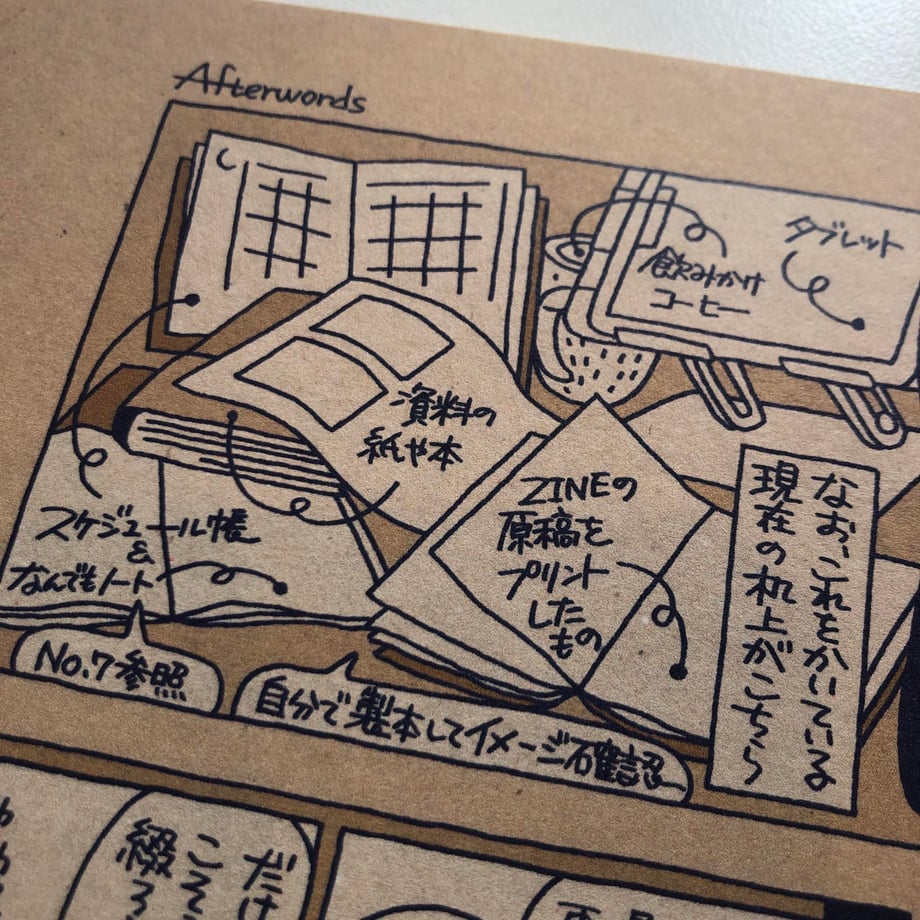 Afterwords
タブレット
飲みかけ
コーヒー
資料の
紙や本
ZINEの
原稿を
プリント
した
もの
なお、これをかいている
現在の机上がこちら
スケジュール帳
&
なんでもノート
No.7参照
自分で製本してイメージ確認
だけ
こそ
綴ろ